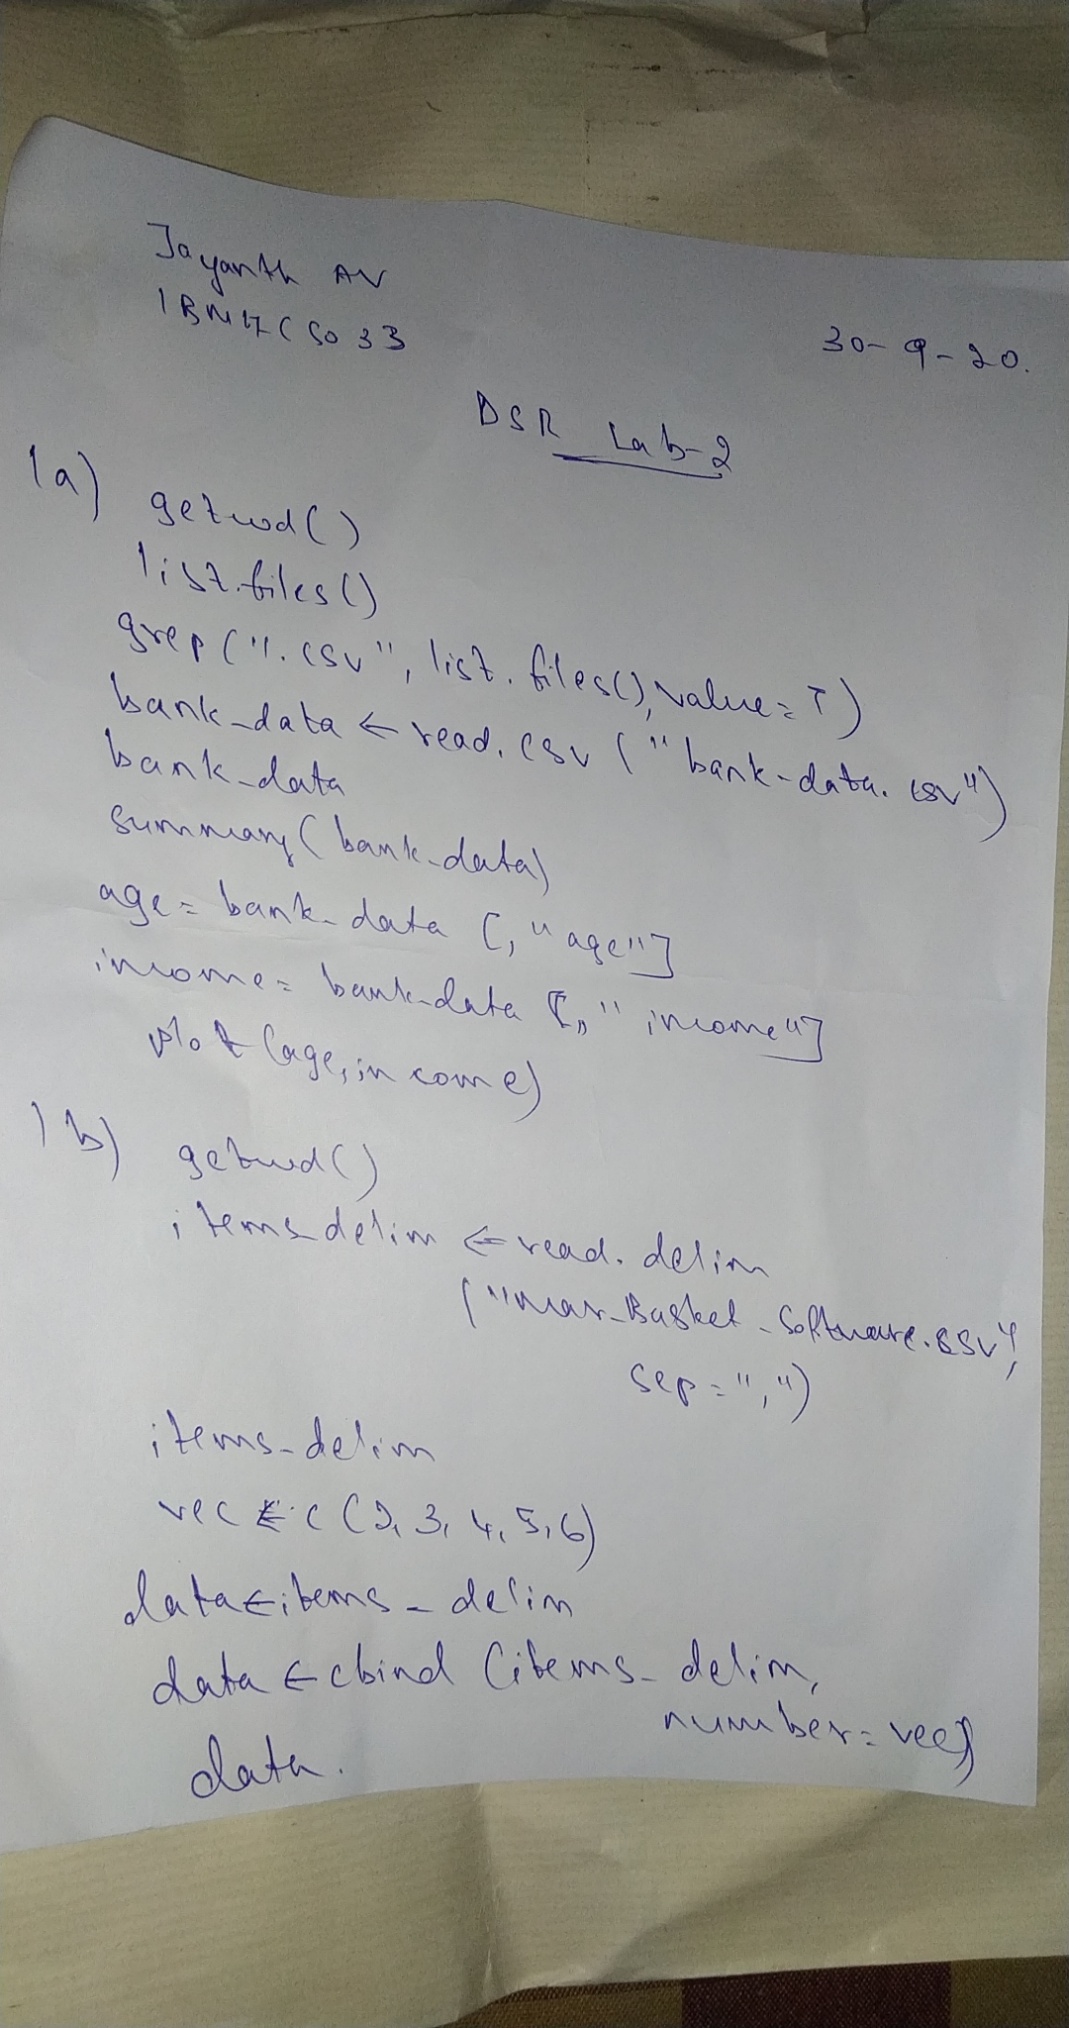 Jayanth AV
1BM17CS033
30-9-20.
DSR Lab-2
1a)
getwd()
list.files()
grep(".csv", list.files(), value=T)
bank_data ← read.csv("bank-data.csv")
bank_data
summary(bank_data)
age = bank_data [,"age"]
income = bank_data [,"income"]
plot (age, income)
1b)
getwd()
items_delim ← read.delim
("mar_Basket_Software.csv",
sep=",")
items_delim
vec ← c(2,3,4,5,6)
data ← items_delim
data ← cbind (items_delim,
number=vec)
data.